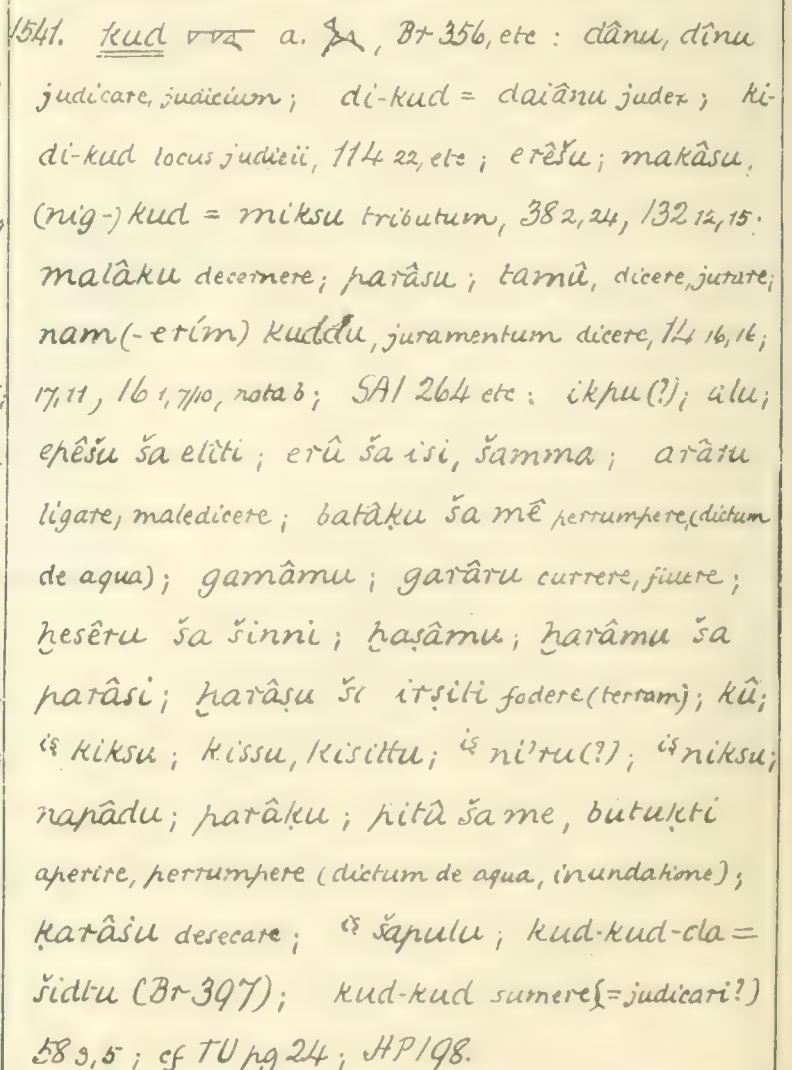 1541. kud a. , Br 356, etc : dânu, dînu
judicare, judicium ; di-kud = daiânu judex ; ki-
di-kud locus judicii, 114 22, etc ; erêšu ; makâsu,
(nig-) kud = miksu tributum, 38 2, 24, 132 12, 15.
malâku decernere ; parâsu ; tamû, dicere, jurare ;
nam (-erím) kuddu, juramentum dicere, 14 16, 16 ;
17, 11, 16 1, 7/10, nota b ; SAI 264 etc : ikpu (?) ; alu ;
epêšu ša elîti ; erû ša isi, šamma ; arâru
ligare, maledicere ; batâḳu ša mê perrumpere, (dictum
de aqua) ; gamâmu ; garâru currere, fluere ;
ḫesêru ša šinni ; ḫaṣâmu ; ḫarâmu ša
parâsi ; ḫarâṣu ša irṣiti fodere (terram) ; kû ;
iṣ kiksu ; kissu, kisittu ; iṣ ni'ru (?) ; iṣ niksu ;
napâdu ; parâḳu ; pitû ša me, butuḳti
aperire, perrumpere (dictum de aqua, inundatione) ;
ḳarâšu desecare ; iṣ šapulu ; kud-kud-da =
šidtu (Br 397) ; kud-kud sumere (= judicari ?)
58 3, 5 ; cf TU pg 24 ; HP 198.